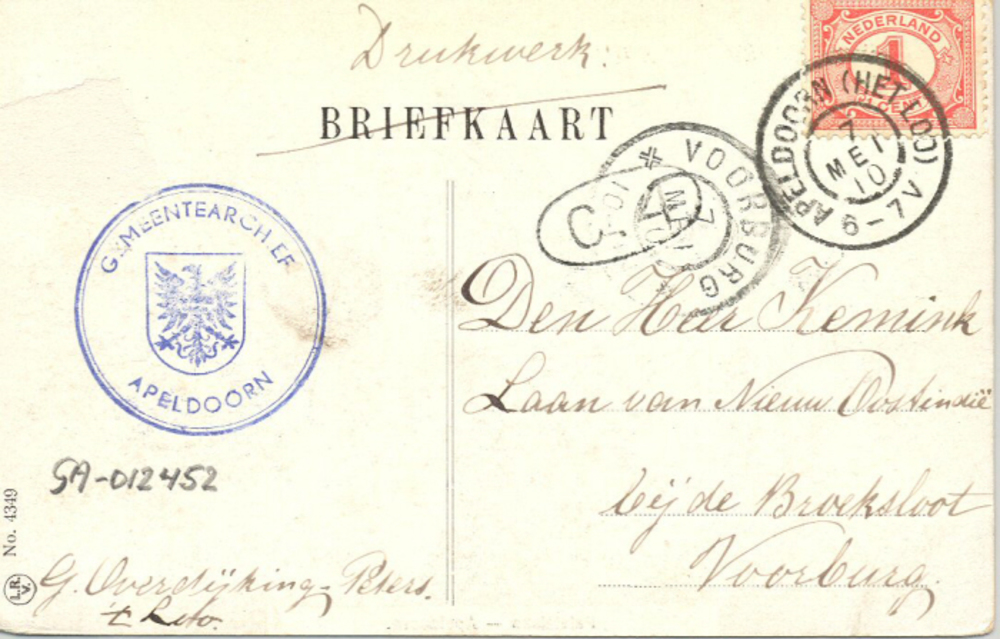 Drukwerk:
BRIEFKAART
NEDERLAND
1
APELDOORN (HET LOO)
7
MEI
10
6-7V
VOORBURG
7
MEI
10
C
GEMEENTEARCHIEF
APELDOORN
Den Heer Kemink
Laan van Nieuw Oostindië
bij de Broeksloot
Voorburg.
GA-012452
No. 4349
L.R.
V.
G. Overdijking-Peters.
't Loo.